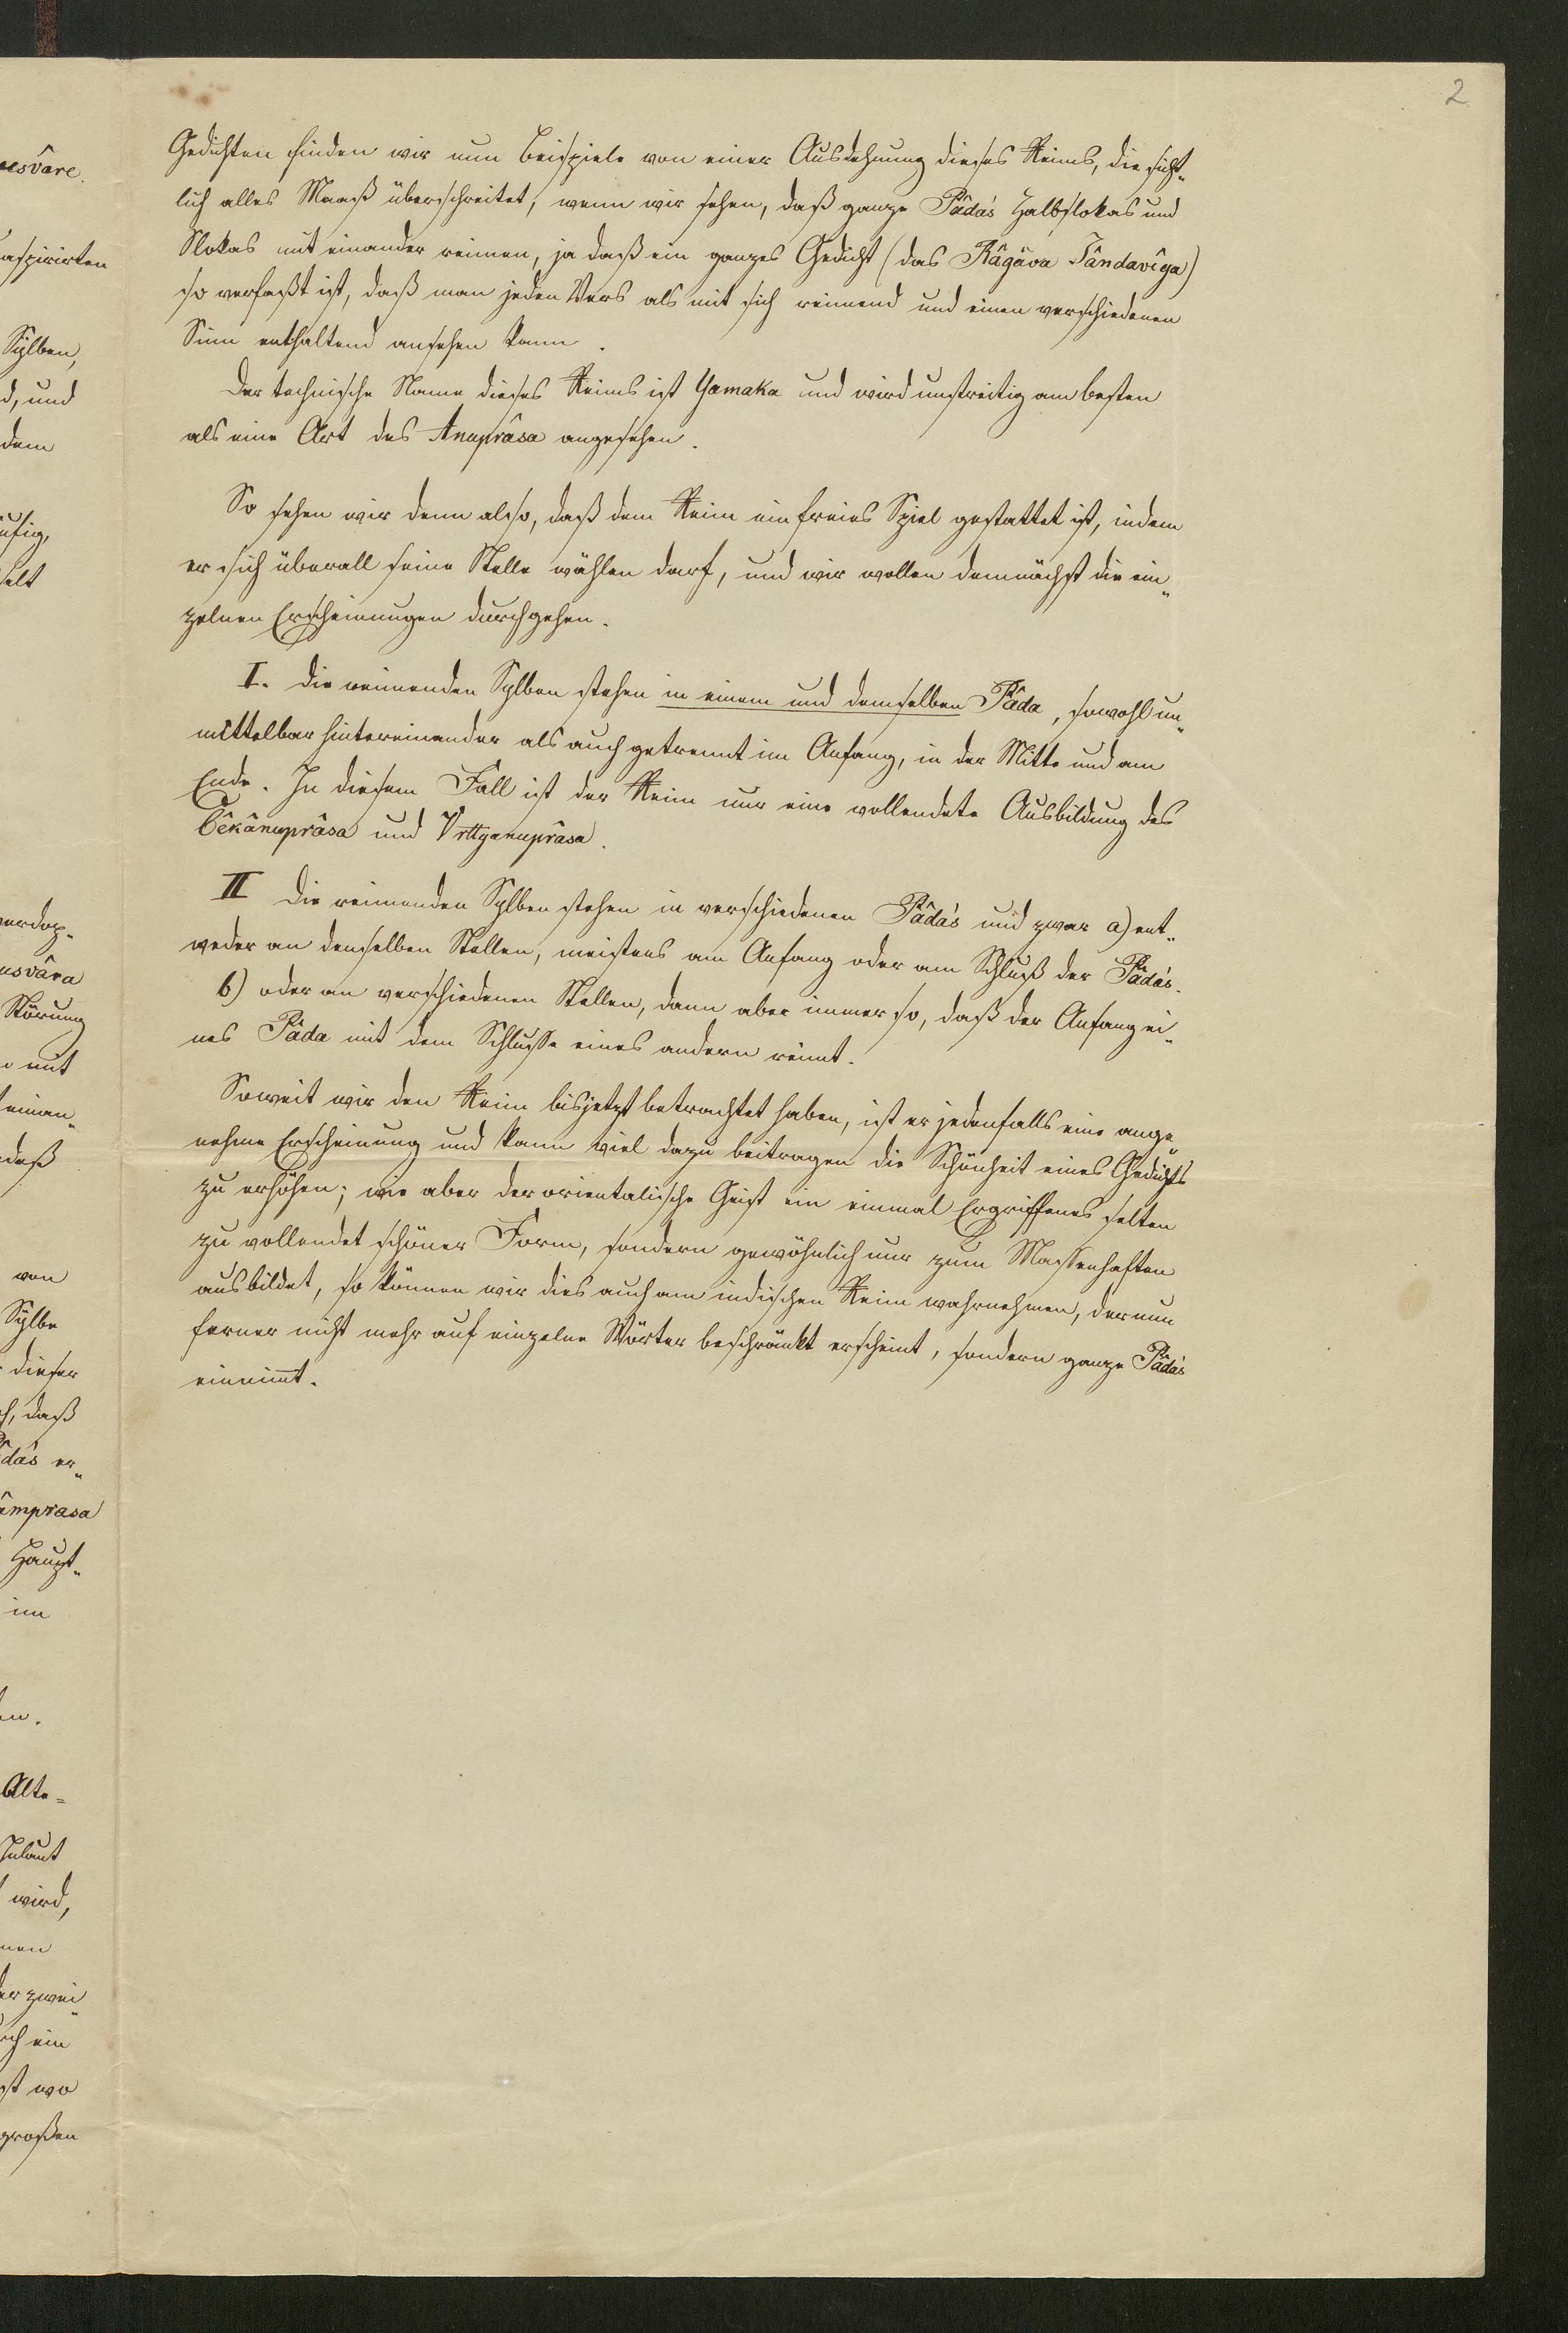 2
Gedichten finden wir nun Beispiele von einer Ausdehnung dieses Reims, die sicht-
lich alles Maaß überschreitet, wenn wir sehen, daß ganze Pâda's Halbslokas und
Slokas mit einander reimen, ja daß ein ganzes Gedicht (das Râgâva Pândavîya)
so verfaßt ist, daß man jeden Vers als mit sich reimend und einen verschiedenen
Sinn enthaltend ansehen kann.
Der technische Name dieses Reims ist Yamaka und wird unstreitig am besten
als eine Art des Anuprâsa angesehen.
So sehen wir denn also, daß dem Reim ein freies Spiel gestattet ist, indem
er sich überall seine Stelle wählen darf, und wir wollen demnächst die ein-
zelnen Erscheinungen durchgehen.
I. Die reimenden Sylben stehen in einem und demselben Pâda, sowohl un-
mittelbar hintereinander als auch getrennt im Anfang, in der Mitte und am
Ende. In diesem Fall ist der Reim nur eine vollendete Ausbildung des
Cêkânuprâsa und Vrttyanuprâsa.
II Die reimenden Sylben stehen in verschiedenen Pâda's und zwar a) ent-
weder an denselben Stellen, meistens am Anfang oder am Schluß der Pâda's.
b) oder an verschiedenen Stellen, dann aber immer so, daß der Anfang ei-
nes Pâda mit dem Schlusse eines andern reimt.
Soweit wir den Reim bisjetzt betrachtet haben, ist er jedenfalls eine ange-
nehme Erscheinung und kann viel dazu beitragen die Schönheit eines Gedichts
zu erhöhen; wie aber der orientalische Geist ein einmal Ergriffenes selten
zu vollendet schöner Form, sondern gewöhnlich nur zum Massenhaften
ausbildet, so können wir dies auch am indischen Reim wahrnehmen, der nun
ferner nicht mehr auf einzelne Wörter beschränkt erscheint, sondern ganze Pâda's
einnimt.